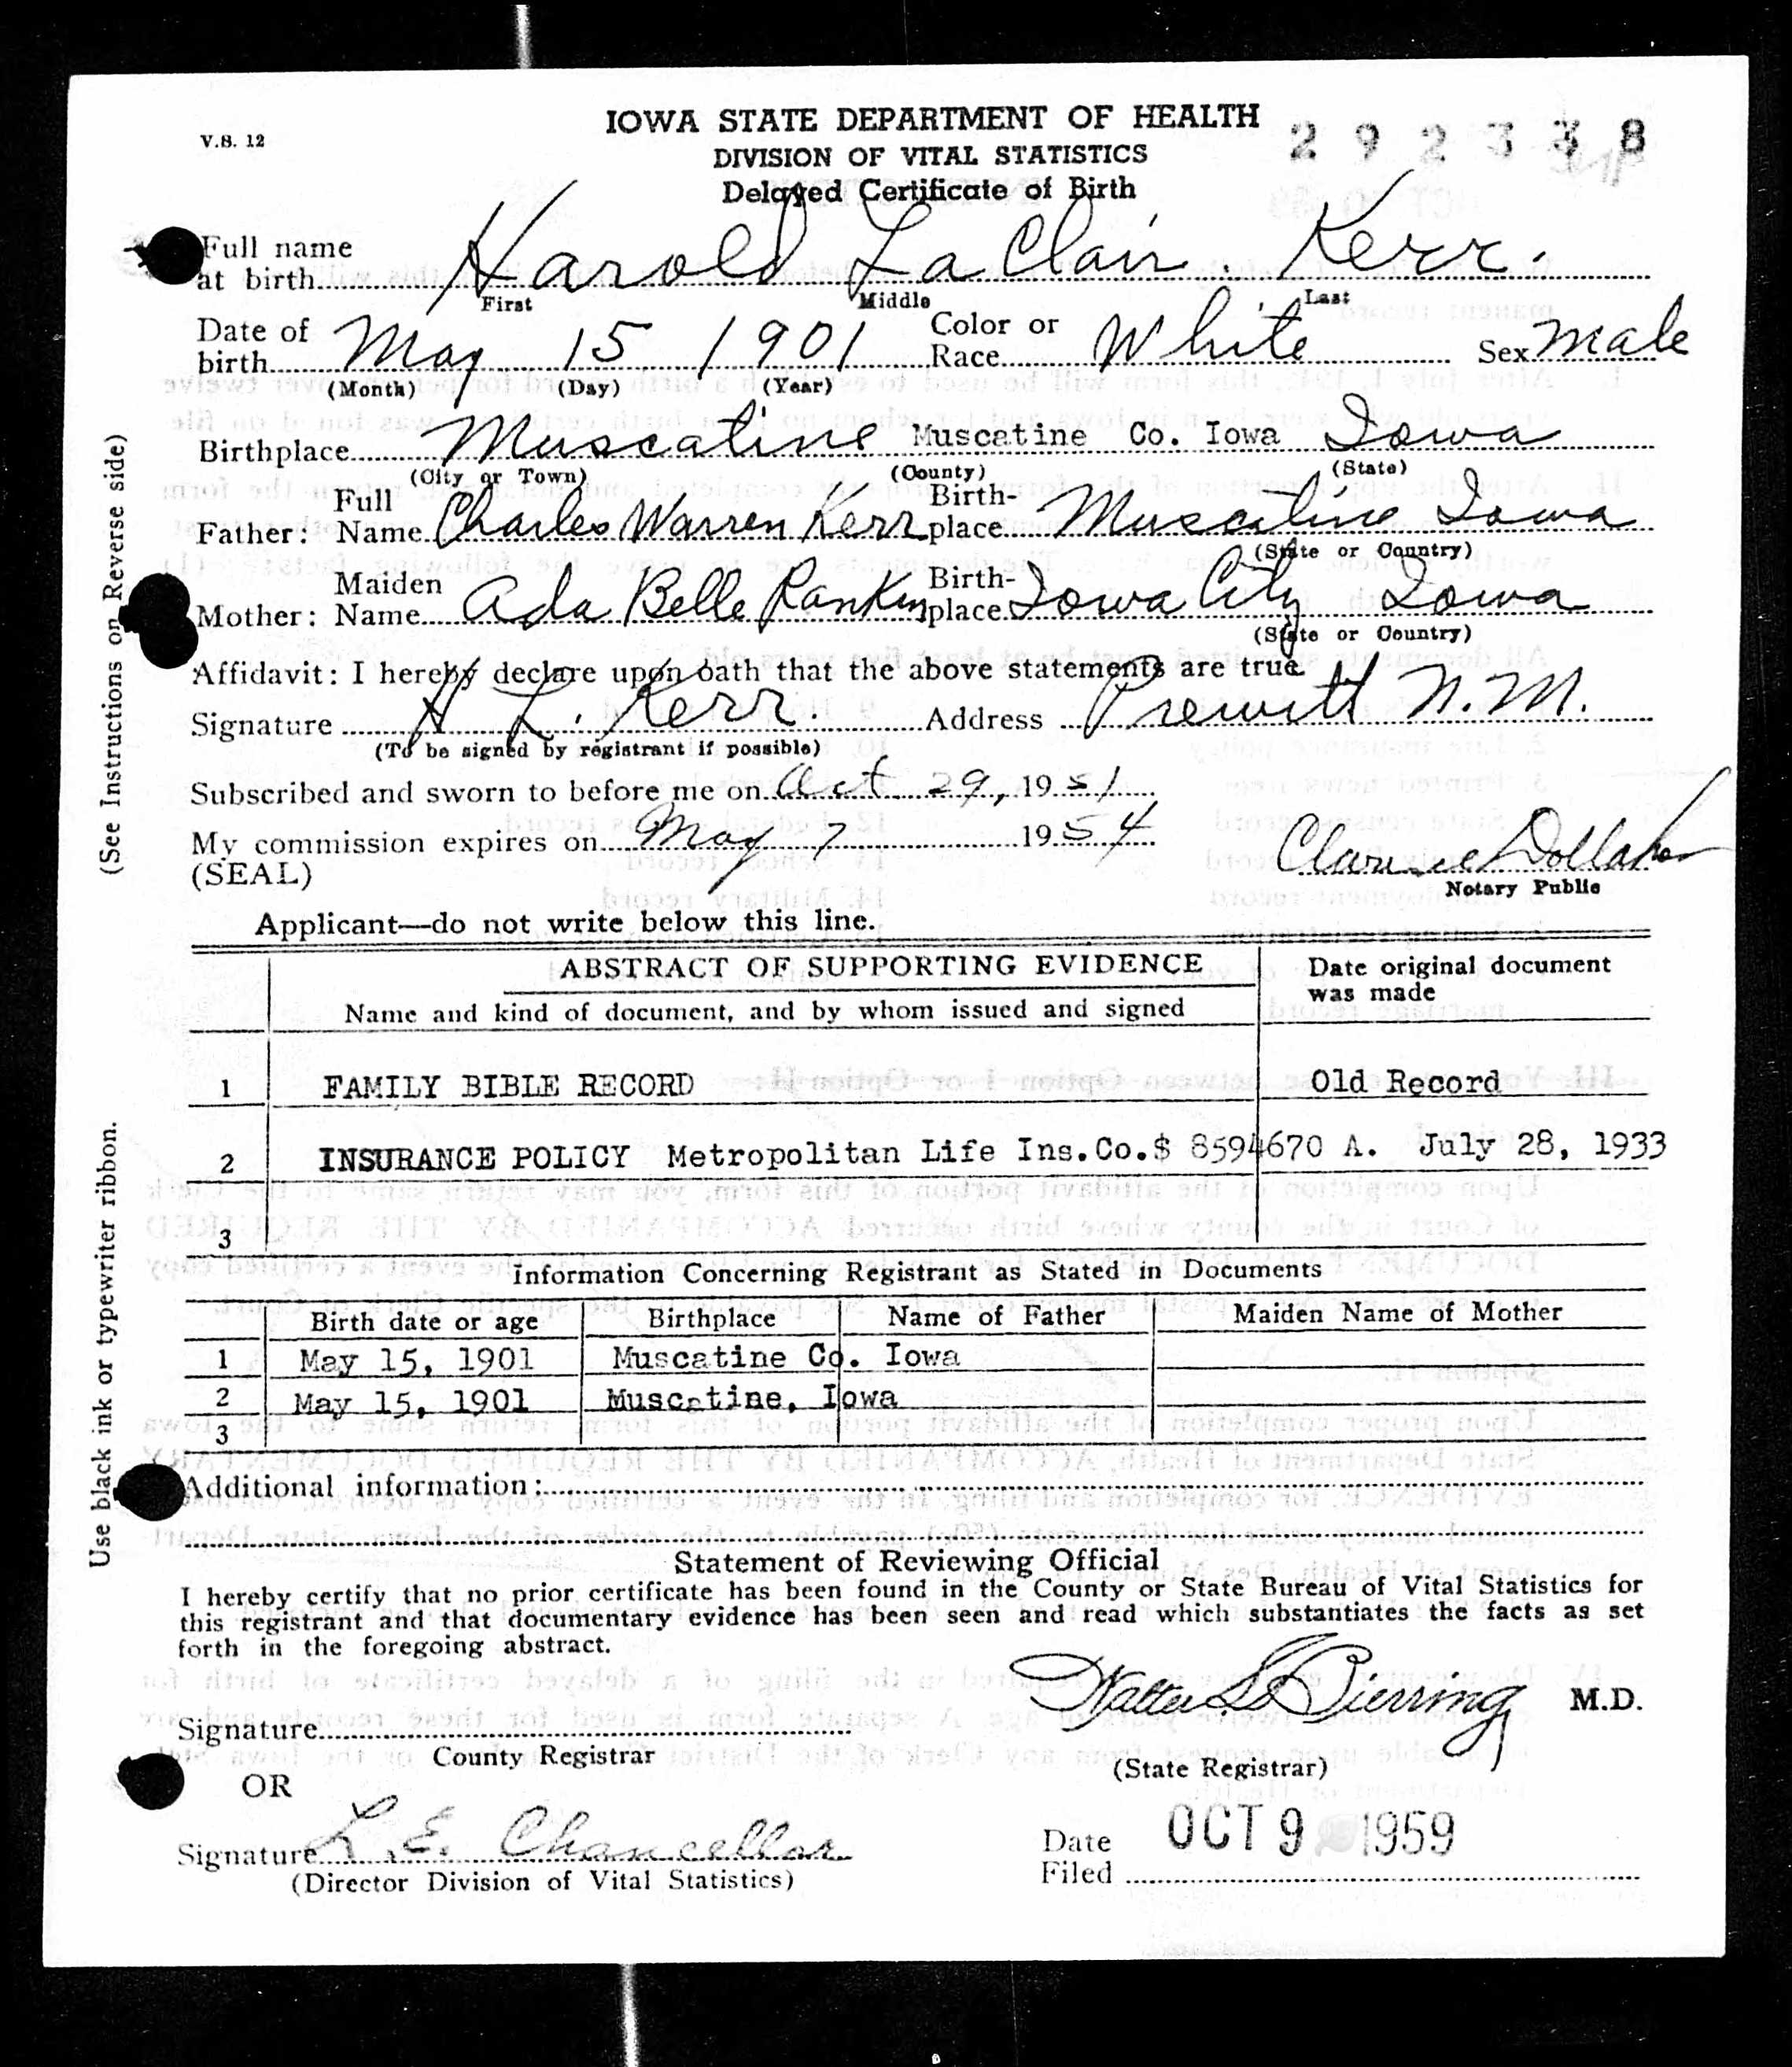 V.S. 12
IOWA STATE DEPARTMENT OF HEALTH
292338
DIVISION OF VITAL STATISTICS
Delayed Certificate of Birth
Full name at birth Harold LaClair Kerr.
First Middle Last
Date of birth May 15 1901 Color or Race White Sex Male
(Month) (Day) (Year)
Birthplace Muscatine Muscatine Co. Iowa Iowa
(City or Town) (County) (State)
Father: Full Name Charles Warren Kerr Birth-place Muscatine Iowa
(State or Country)
Mother: Maiden Name Ada Belle Rankin Birth-place Iowa City Iowa
(State or Country)
Affidavit: I hereby declare upon oath that the above statements are true.
Signature H. L. Kerr. Address Prewitt N.M.
(To be signed by registrant if possible)
Subscribed and sworn to before me on Oct. 29, 1951
My commission expires on May 7 1954
(SEAL)
Dollahon
Notary Public
Applicant—do not write below this line.
ABSTRACT OF SUPPORTING EVIDENCE
Name and kind of document, and by whom issued and signed
Date original document was made
1 FAMILY BIBLE RECORD Old Record
2 INSURANCE POLICY Metropolitan Life Ins.Co.$ 8594670 A. July 28, 1933
3
Information Concerning Registrant as Stated in Documents
Birth date or age Birthplace Name of Father Maiden Name of Mother
1 May 15, 1901 Muscatine Co. Iowa
2 May 15, 1901 Muscatine, Iowa
3
Additional information:
Statement of Reviewing Official
I hereby certify that no prior certificate has been found in the County or State Bureau of Vital Statistics for
this registrant and that documentary evidence has been seen and read which substantiates the facts as set
forth in the foregoing abstract.
Walter L. Bierring M.D.
Signature
County Registrar
(State Registrar)
OR
Signature L. E. Chancellor
(Director Division of Vital Statistics)
Date Filed OCT 9 1959
(See Instructions on Reverse side)
Use black ink or typewriter ribbon.